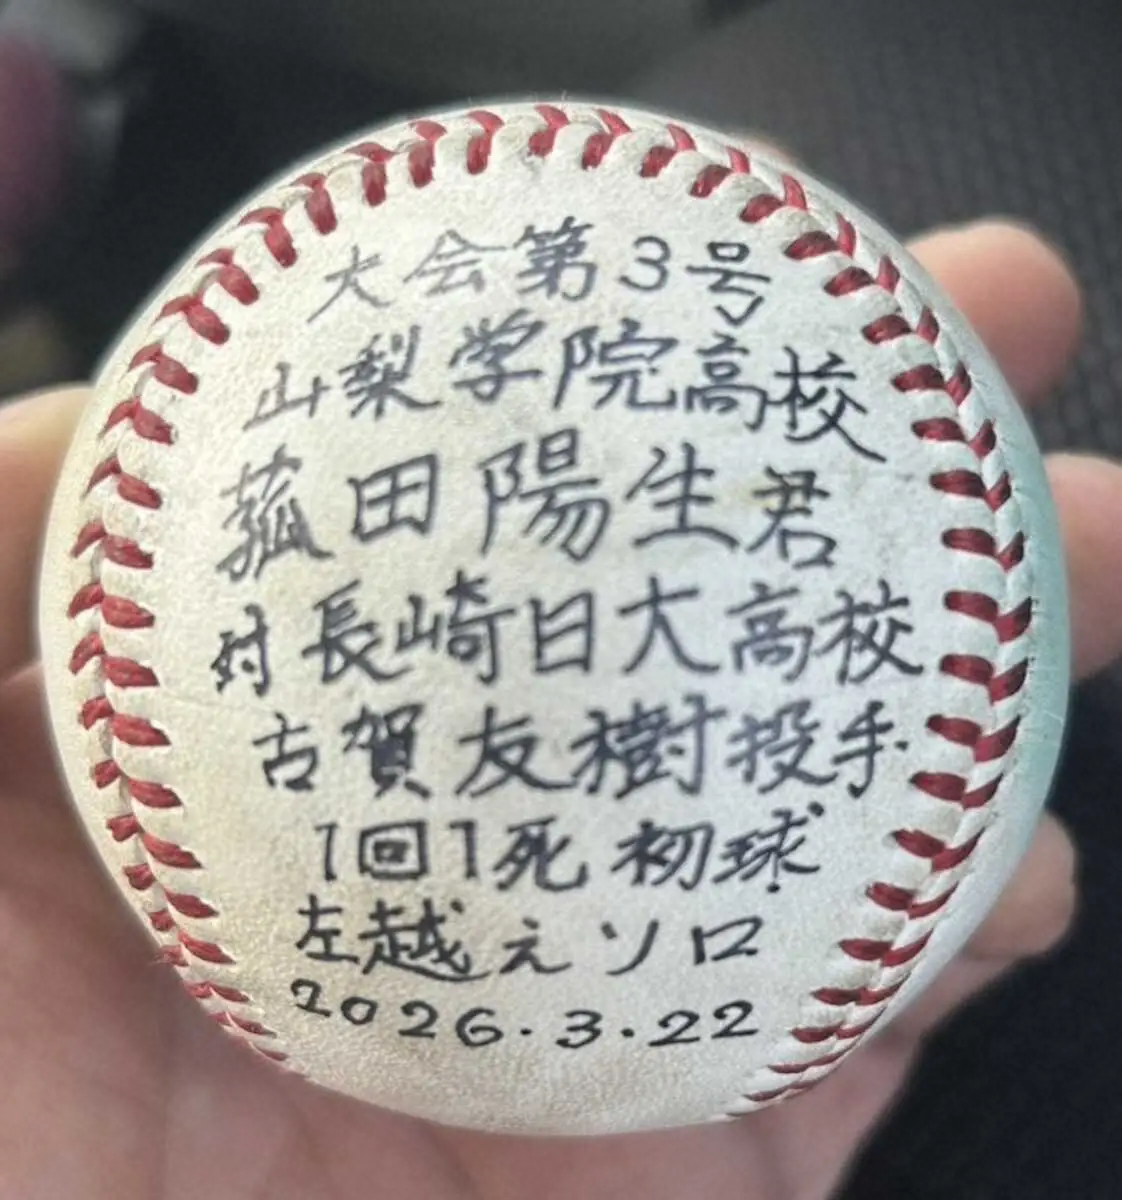 大会第3号
山梨学院高校
菰田陽生君
対長崎日大高校
古賀友樹投手
1回1死初球
左越えソロ
2026.3.22